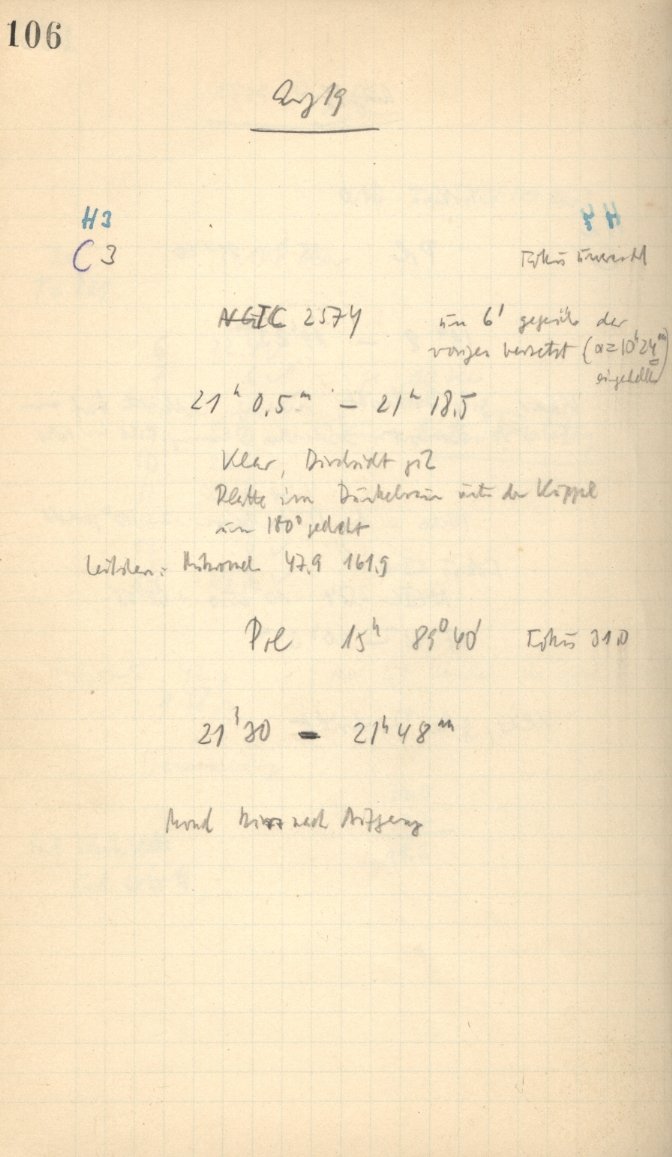 106
Aug 19
H3 PH
C 3 Fokus
NG IC 2574 um 6' gegenüb der
vorigen versetzt (α=10h24m
eingestellt)
21h 0.5m – 21h 18.5
Klar, Durchsicht gut
Platte im Dunkelraum unter der Kuppel
um 180° gedreht
Leitstern: Mikromet. 47.9 161.9
Pol 15h 89°40' Fokus 31.0
21h30 – 21h48m
Mond kurz nach Aufgang